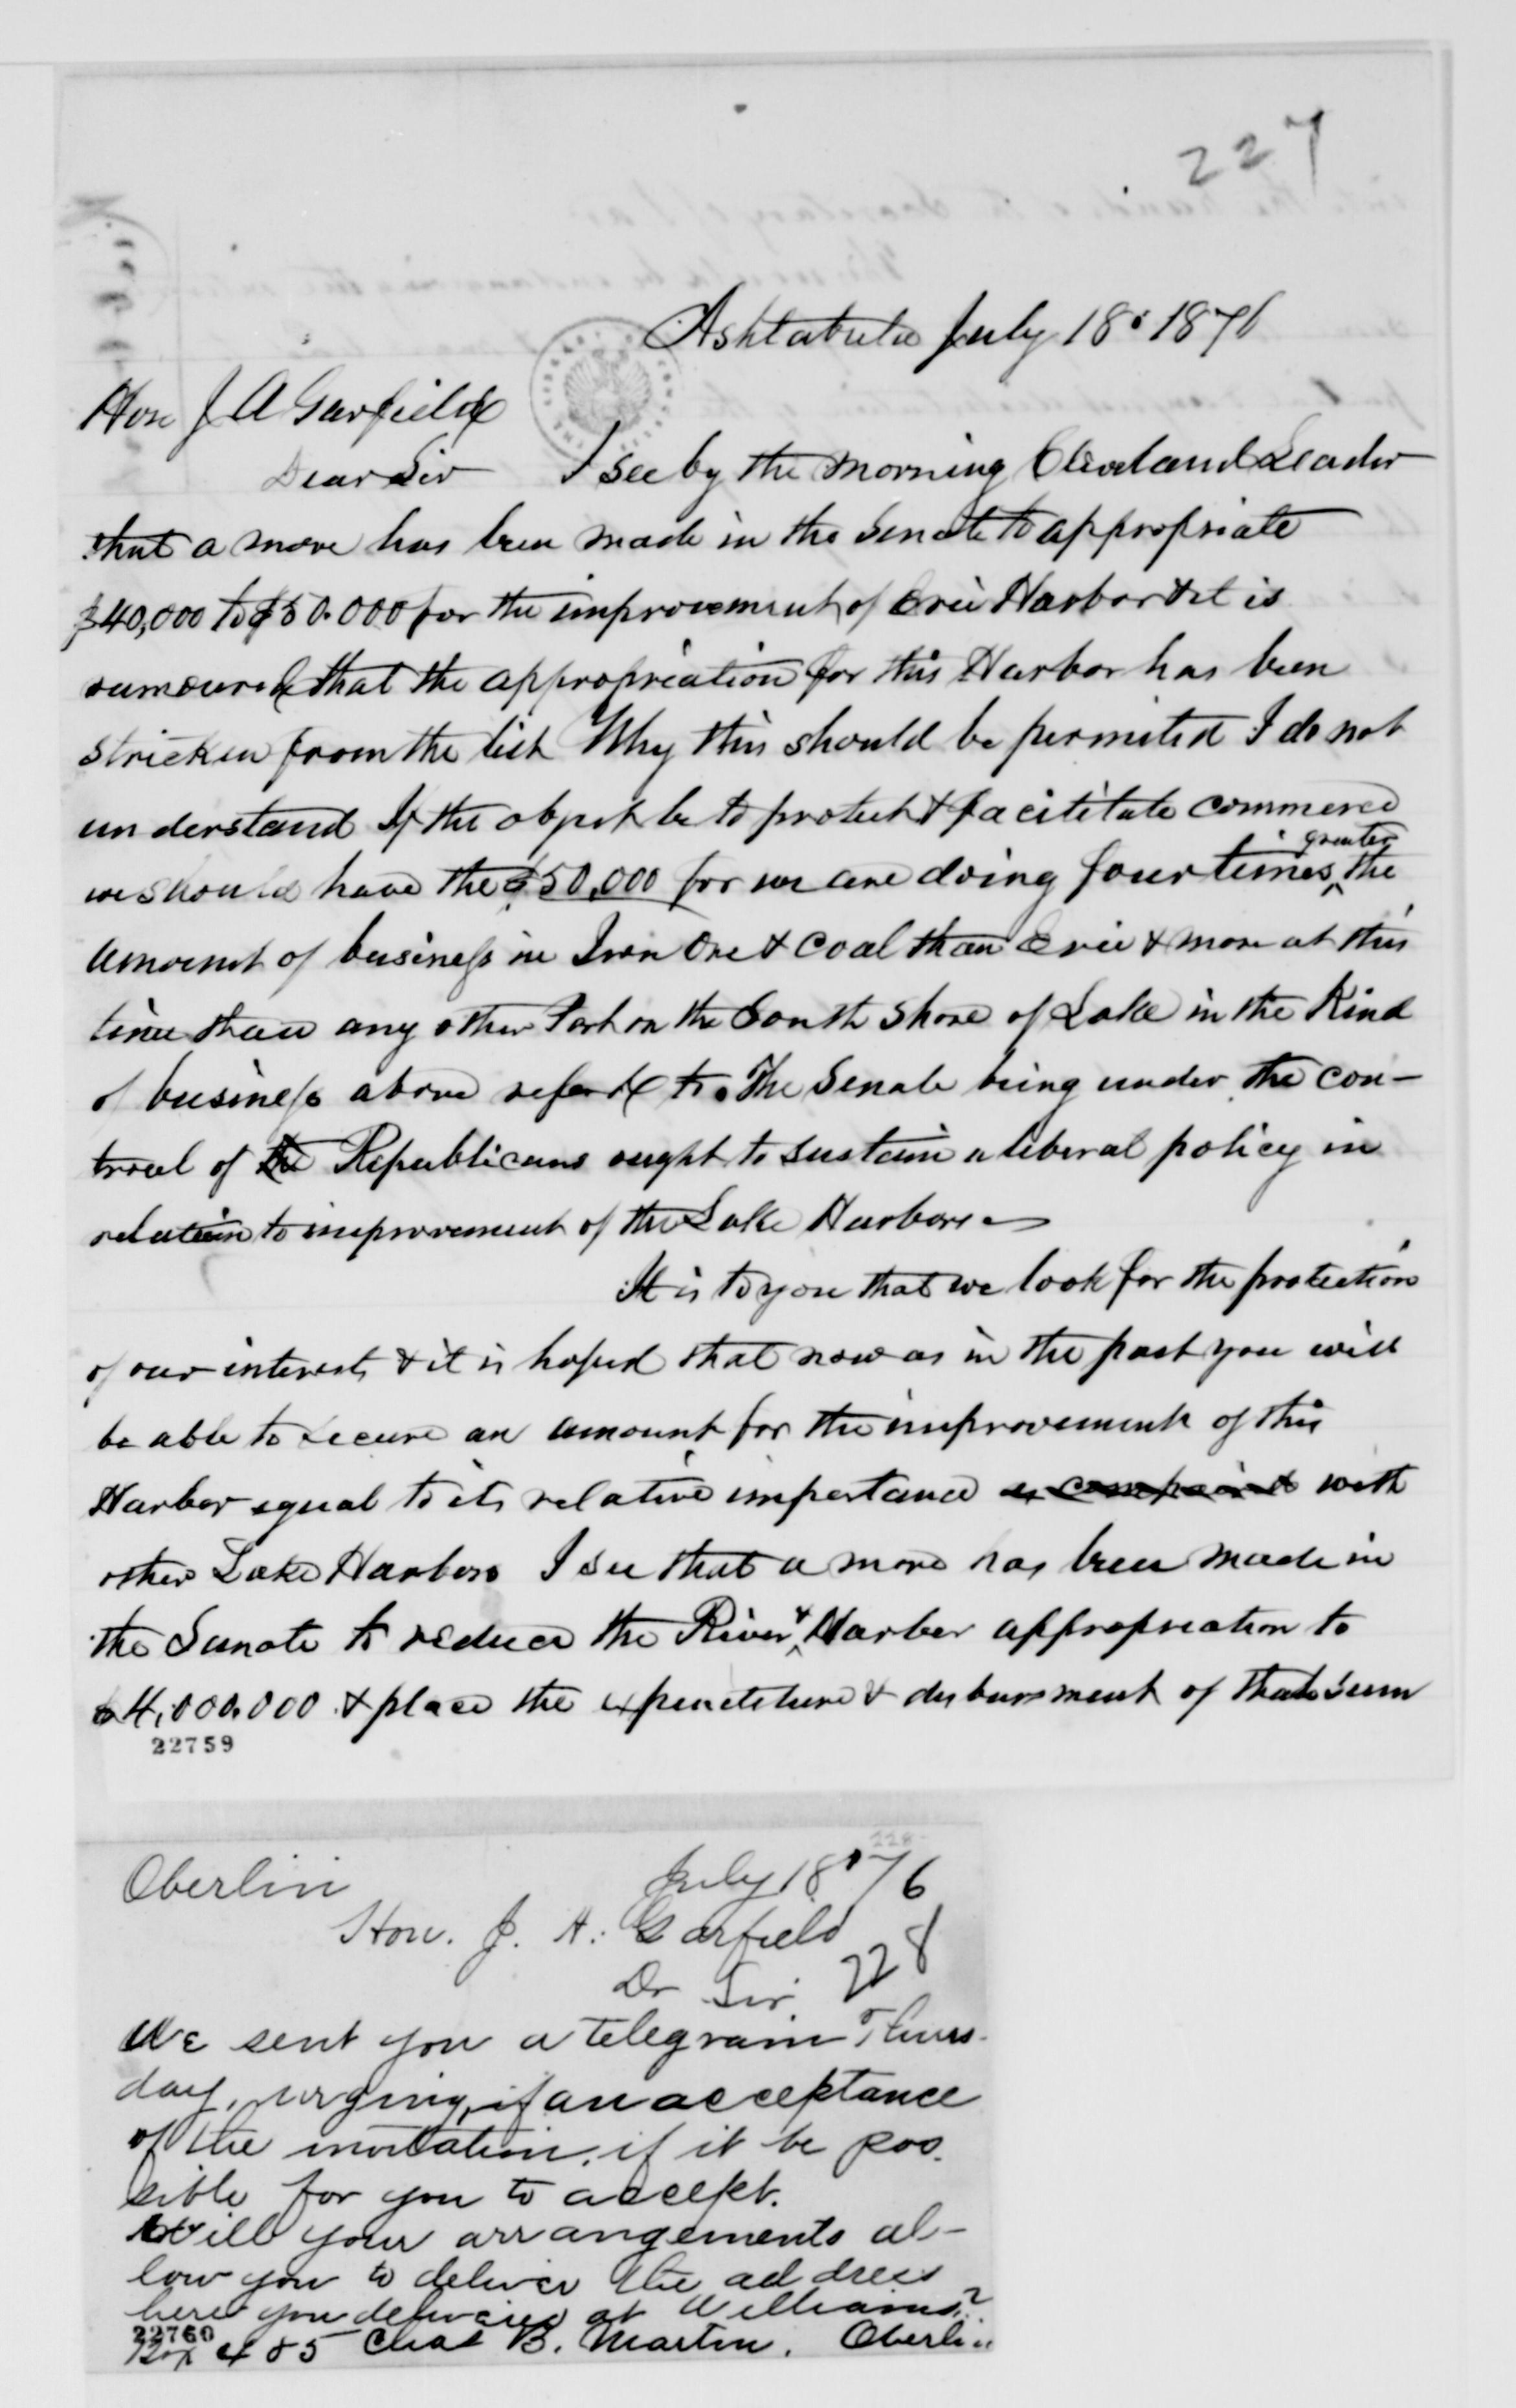 227
Ashtabula July 18. 1876
Hon J A Garfield
Dear Sir I see by the morning Cleveland Leader
that a move has been made in the Senate to appropriate
$40,000 to $50.000 for the improvement of Erie Harbor & it is
rumoured that the appropriation for this Harbor has been
stricken from the list Why this should be permited I do not
understand If the object be to protect & facilitate commerce
we should have the $50,000 for we are doing four times greater the
amount of business in Iron Ore & Coal than Erie & more at this
time than any other Port on the South Shore of Lake in the Kind
of business above referd to. The Senate being under the con-
troul of the Republicans ought to sustain a liberal policy in
relation to improvement of the Lake Harbors
It is to you that we look for the protection
of our interests & it is hoped that now as in the past you will
be able to secure an amount for the improvement of this
Harbor equal to its relative importance with
other Lake Harbors I see that a move has been made in
the Senate to reduce the River & Harbor appropriation to
$4,000.000 & place the expenditure & disbursment of that sum
22759
228
Oberlin July 18. '76
Hon. J. A. Garfield
Dr Sir. 228
We sent you a telegram Thurs-
day, urging, if an acceptance
of the invitation, if it be pos-
sible for you to accept.
Will your arrangements al-
low you to deliver the address
here you delivered at Williams?
22760
Box 485 Chas B. Martin. Oberlin